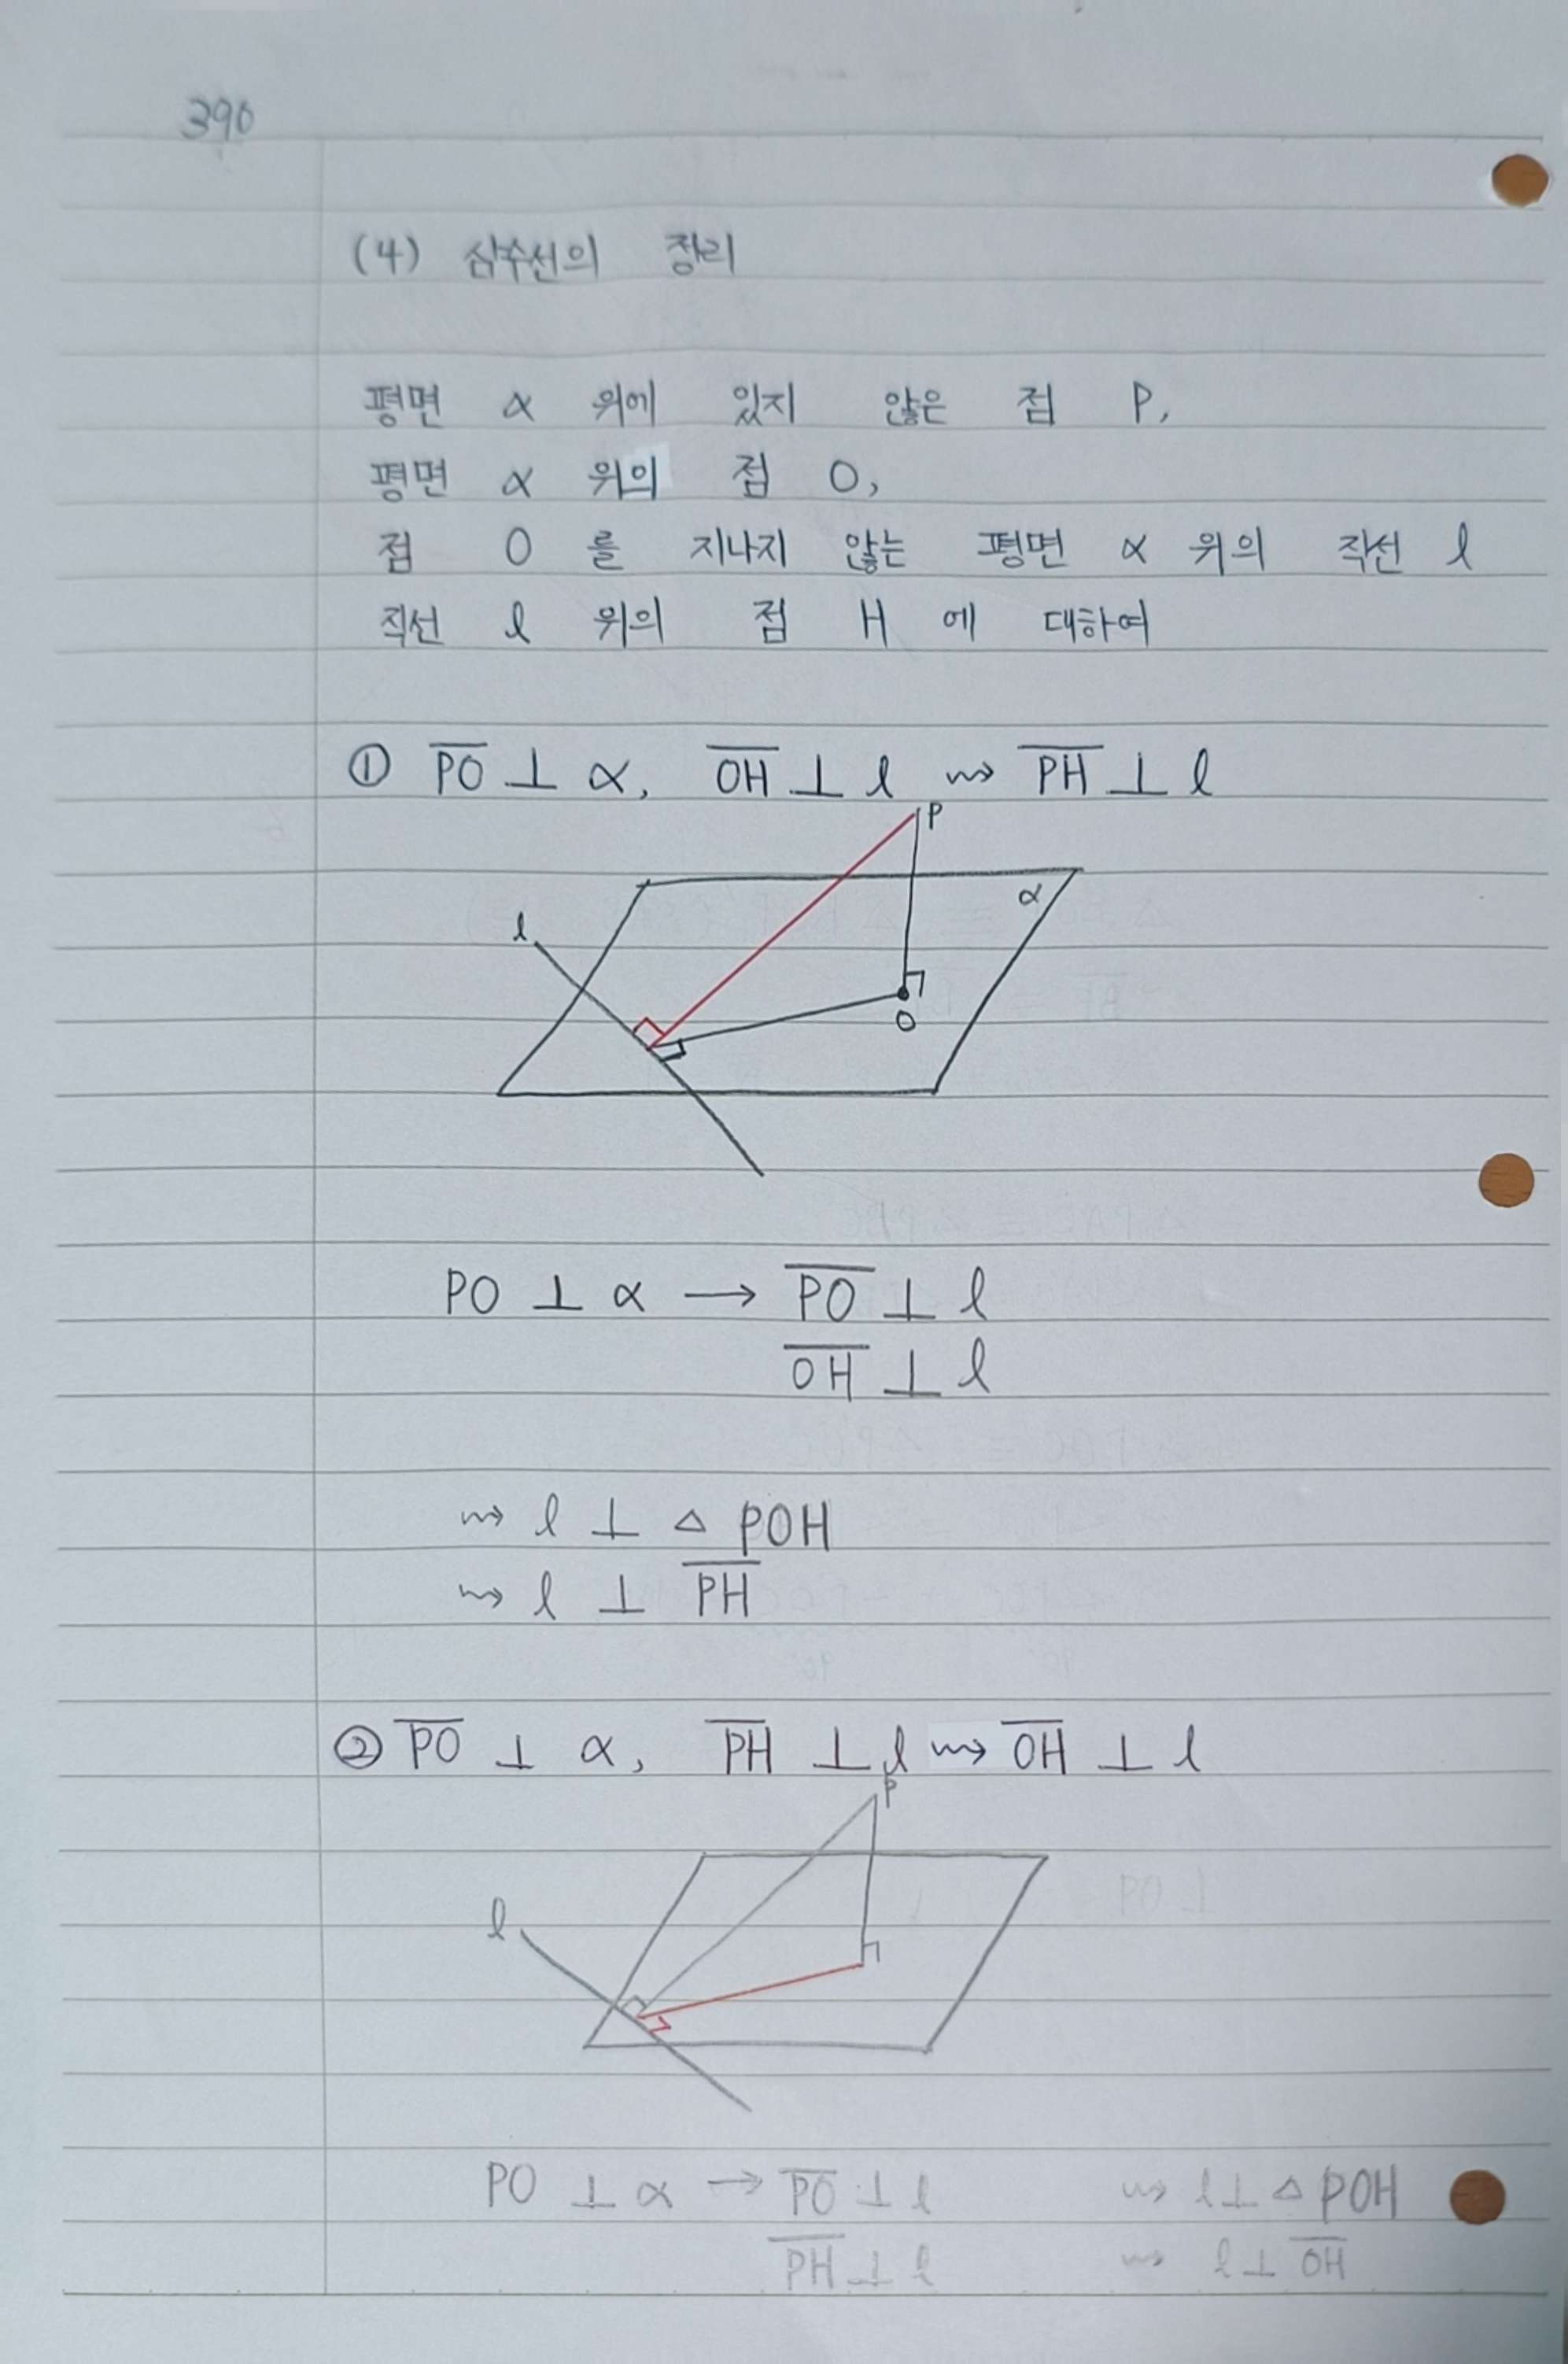 390
(4) 삼수선의 정리
평면 α 위에 있지 않은 점 P,
평면 α 위의 점 O,
점 O 를 지나지 않는 평면 α 위의 직선 l
직선 l 위의 점 H 에 대하여
① P̅O̅ ⊥ α, O̅H̅ ⊥ l ⇝ P̅H̅ ⊥ l
P
α
l
O
PO ⊥ α → P̅O̅ ⊥ l
O̅H̅ ⊥ l
⇝ l ⊥ △ POH
⇝ l ⊥ P̅H̅
② P̅O̅ ⊥ α, P̅H̅ ⊥ l ⇝ O̅H̅ ⊥ l
P
l
PO ⊥ α → P̅O̅ ⊥ l ⇝ l ⊥ △ POH
P̅H̅ ⊥ l ⇝ l ⊥ O̅H̅